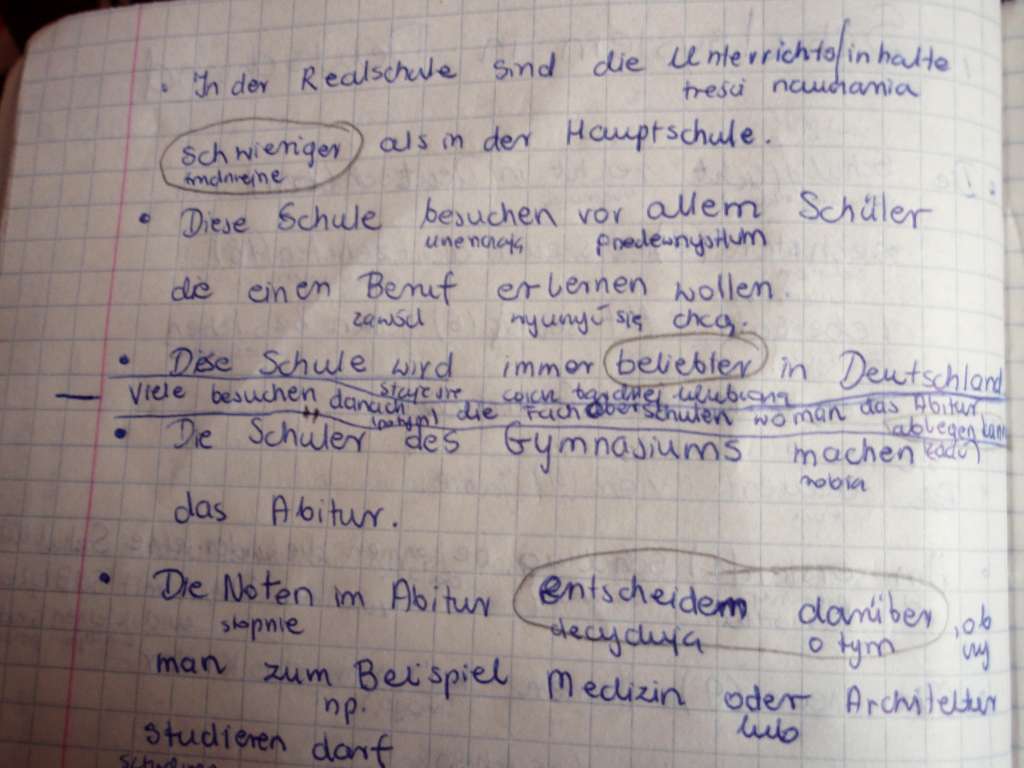 • In der Realschule sind die Unterrichts/inhalte
treści nauczania
schwieriger als in der Hauptschule.
trudniejsze
• Diese Schule besuchen vor allem Schüler
uczęszczają przedewszystkim
die einen Beruf erlernen wollen.
zawód wyuczyć się chcą.
• Diese Schule wird immer beliebter in Deutschland
staje się coraz bardziej ulubioną
— Viele besuchen danach die Fachoberschulen wo man das Abitur
(potem) ablegen kann
• Die Schüler des Gymnasiums machen
robią
das Abitur.
• Die Noten im Abitur entscheiden darüber, ob
stopnie decydują o tym czy
man zum Beispiel Medizin oder Architektur
np. lub
studieren darf